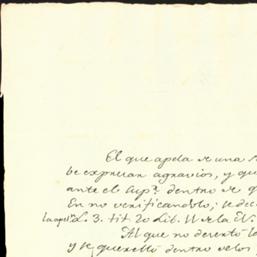 El que apela de una S
be expresar agravios, y qu
ante el Sup.r dentro de q
En no verificandolo; se dec
la apel.n L. 3. tit 20 Lib. IV de la N.
Al que no desertó la
y se querelló dentro de los